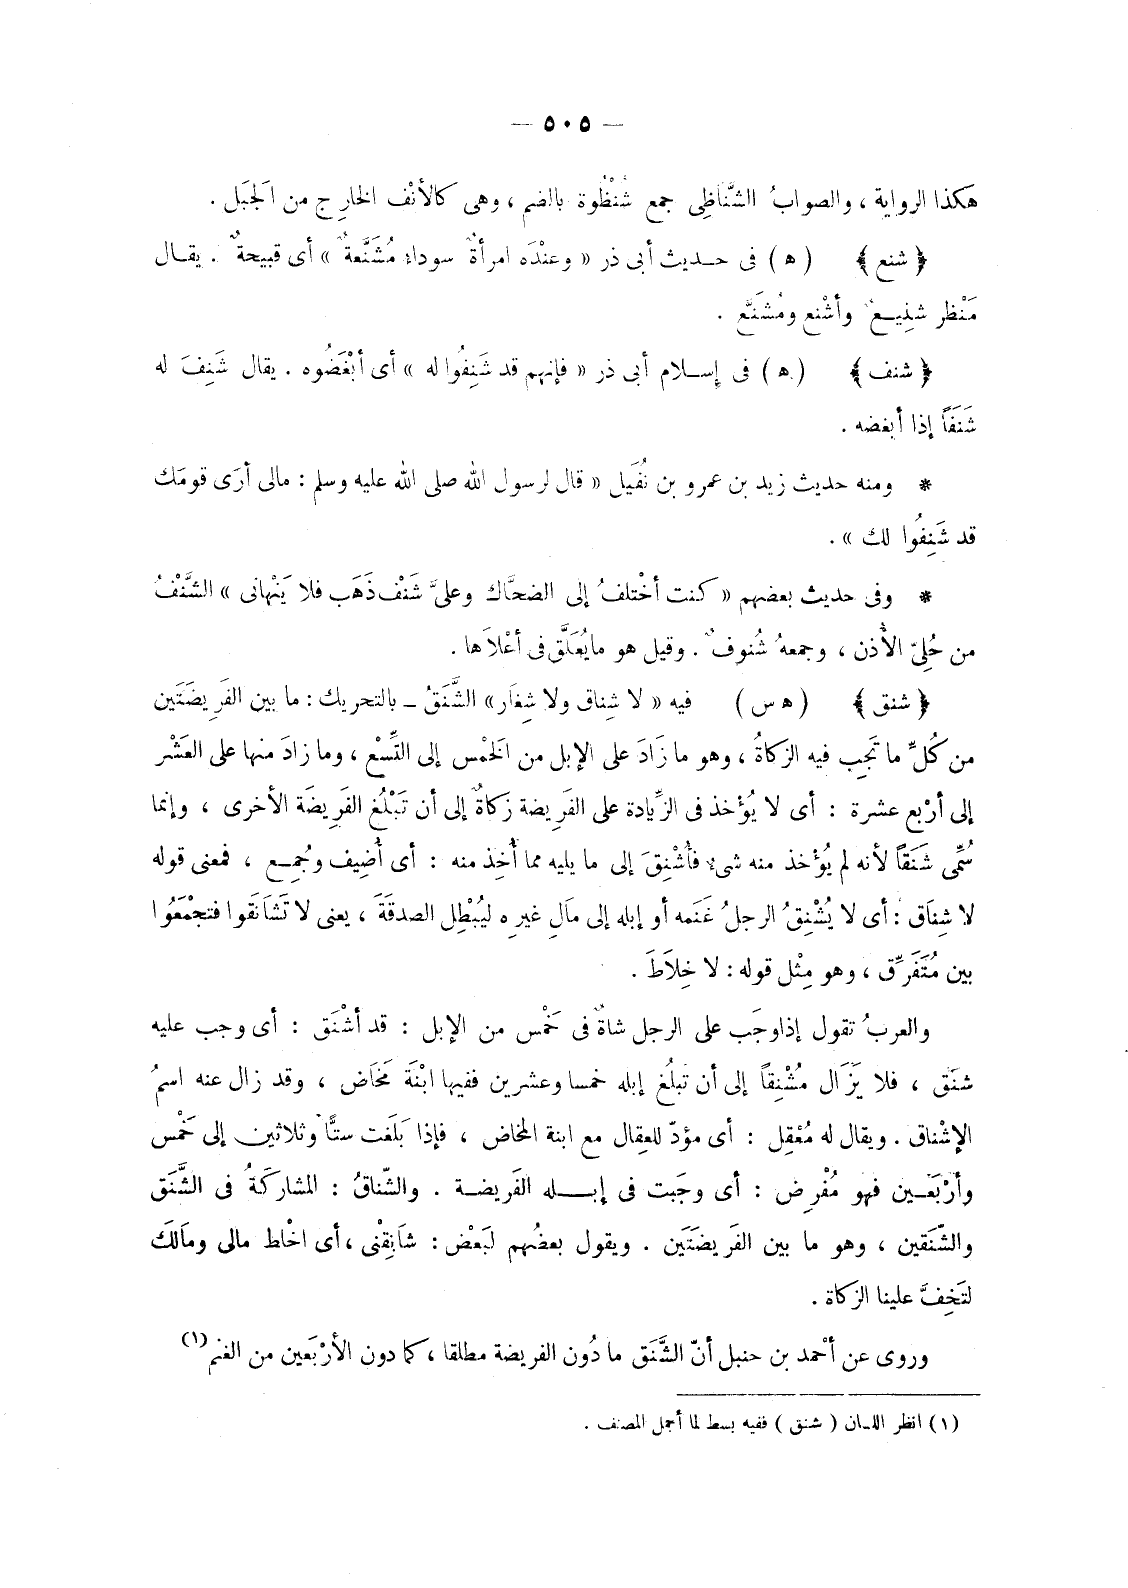 — ٥٠٥ —
هكذا الرواية ، والصوابُ الشَّنَاظِى جمع شُنْظُوة بالضم ، وهى كالأنْف الخارِج من الجَبَل .
﴿ شنع ﴾ ( ه ) فى حديث أبى ذر « وعنْدَه امرأةٌ سوداء مُشَنَّعةٌ » أى قبيحةٌ . يقال
مَنْظر شنِيعٌ وأشْنع ومُشَنَّع .
﴿ شنف ﴾ ( ه ) فى إسلام أبى ذر « فإنهم قد شَنِفُوا له » أى أبْغَضُوه . يقال شَنِفَ له
شَنَفاً إذا أبغضه .
* ومنه حديث زيد بن عمرو بن نُفَيل « قال لرسول الله صلى الله عليه وسلم : مالى أرَى قومَك
قد شَنِفُوا لك » .
* وفى حديث بعضهم « كنت أخْتلفُ إلى الضحَّاك وعلىَّ شَنْف ذَهَب فلا يَنْهانى » الشَّنْفُ
من حُلِىّ الأُذن ، وجمعهُ شُنوفٌ . وقيل هو مايُعَلَّق فى أعْلاَها .
﴿ شنق ﴾ ( ه س ) فيه « لا شِناق ولا شِغاَر » الشَّنَقُ ـ بالتحريك : ما بين الفَرِيضَتَين
من كُلِّ ما تَجِب فيه الزكاةُ ، وهو ما زَادَ على الإبل من الخَمْس إلى التِّسْع ، وما زادَ منها على العَشْر
إلى أرْبع عشرة : أى لا يُؤْخذ فى الزِّيادة على الفَرِيضة زكاةٌ إلى أن تَبْلُغ الفَرِيضَة الأخرى ، وإنما
سُمِّى شَنَقاً لأنه لم يُؤْخذ منه شىء فأُشْنِقَ إلى ما يليه مما أُخِذ منه : أى أُضِيف وجُمِع ، فمعنى قوله
لا شِنَاق : أى لا يُشْنِقُ الرجلُ غَنَمه أو إبله إلى مَالِ غيرِه ليُبْطِل الصدقَةَ ، يعنى لا تَشَانَقوا فتجْمَعُوا
بين مُتَفَرِّق ، وهو مِثْل قوله : لا خِلاَطَ .
والعربُ تقول إذاوجَب على الرجل شاةٌ فى خَمْس من الإبل : قد أشْنَق : أى وجب عليه
شنَق ، فلا يَزَال مُشْنِقاً إلى أن تبلُغ إبله خمسا وعشرين ففيها ابْنَة مَخَاض ، وقد زال عنه اسمُ
الإشْناق . ويقال له مُعْقِل : أى مؤدّ للعِقال مع ابنة المخاض ، فإذا بَلَغت ستًّا وثلاثين إلى خَمْس
وأرْبَعَين فهو مُفْرِض : أى وجَبت فى إبله الفَرِيضة . والشّناقُ : المشاركَةُ فى الشَّنَق
والشّنَقين ، وهو ما بين الفَرِيضَتَين . ويقول بعضُهم لبَعْض : شاَنِقْنى ، أى اخْلط مالى ومَالَكَ
لتَخِفَّ علينا الزكاة .
وروى عن أحْمد بن حنبل أنّ الشَّنَق ما دُون الفريضة مطلقا ، كما دون الأرْبَعين من الغنم (١)
(١) انظر اللسان ( شنق ) ففيه بسط لما أجمل المصنف .